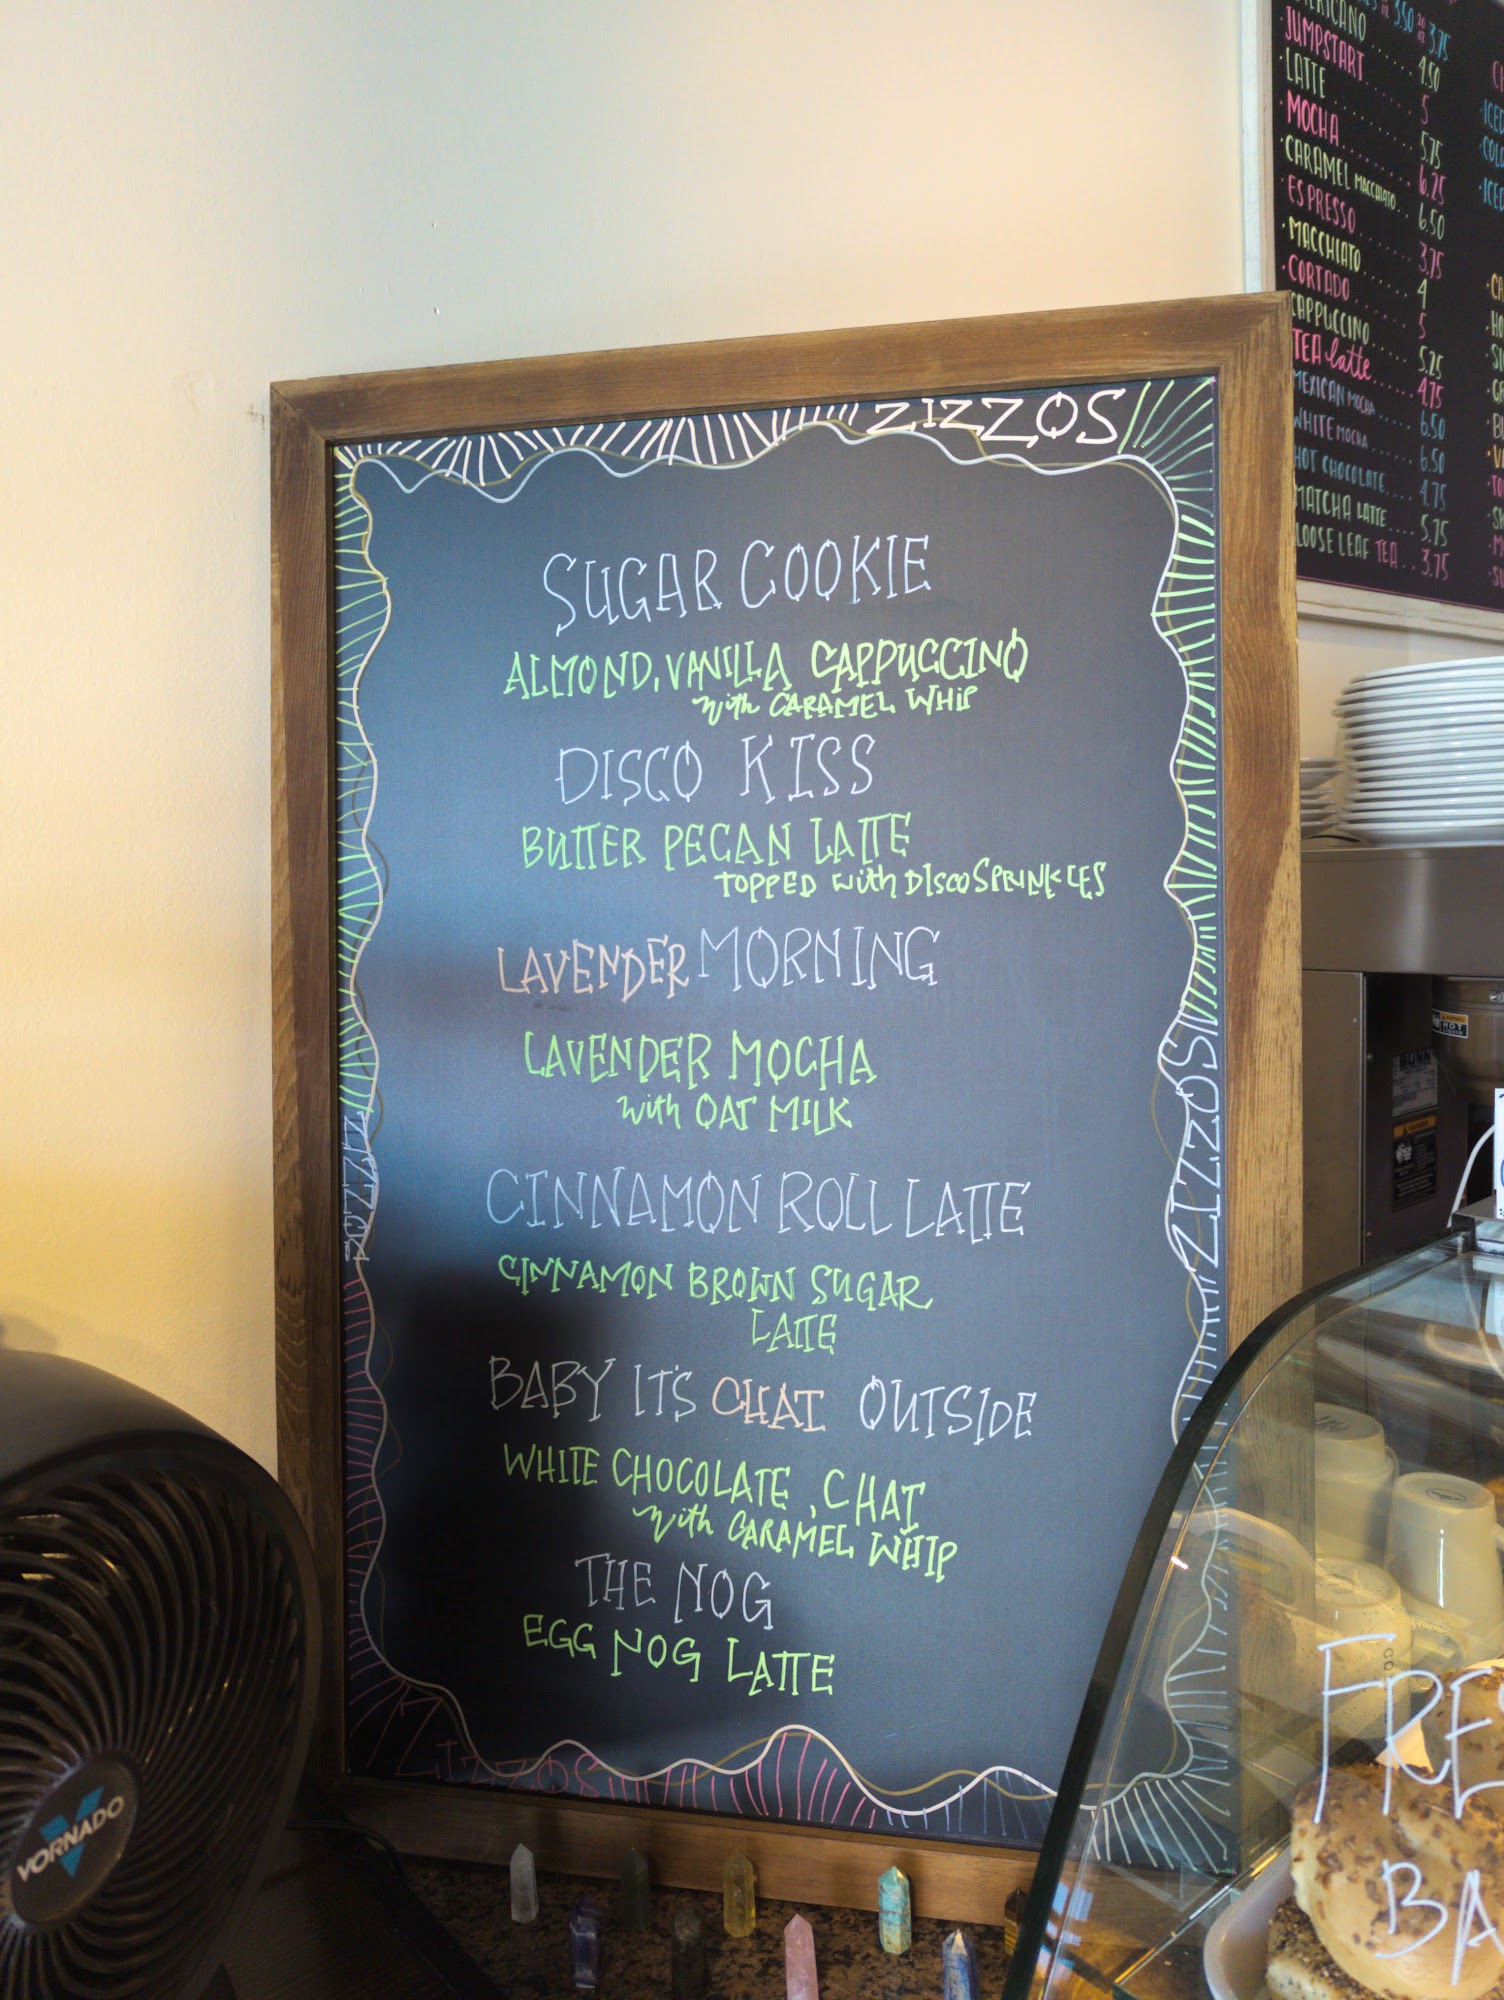 ZIZZOS
SUGAR COOKIE
ALMOND, VANILLA CAPPUCCINO
with CARAMEL WHIP
DISCO KISS
BUTTER PECAN LATTE
TOPPED with DISCO SPRINKLES
LAVENDER MORNING
LAVENDER MOCHA
with OAT MILK
CINNAMON ROLL LATTE
CINNAMON BROWN SUGAR
LATTE
BABY IT'S CHAI OUTSIDE
WHITE CHOCOLATE, CHAI
with CARAMEL WHIP
THE NOG
EGG NOG LATTE
ZIZZOS
ZIZZOS
ZIZZOS
3.50 20 oz 3.75
JUMPSTART 4.50
LATTE 5
MOCHA 5.75
CARAMEL MACCHIATO 6.25
ESPRESSO 6.50
MACCHIATO 3.75
CORTADO 4
CAPPUCCINO 5
TEA latte 5.25
MEXICAN MOCHA 4.75
WHITE MOCHA 6.50
HOT CHOCOLATE 6.50
MATCHA LATTE 4.75
LOOSE LEAF TEA 5.75
3.75
VORNADO
BUNN
HOT
FRE
BA